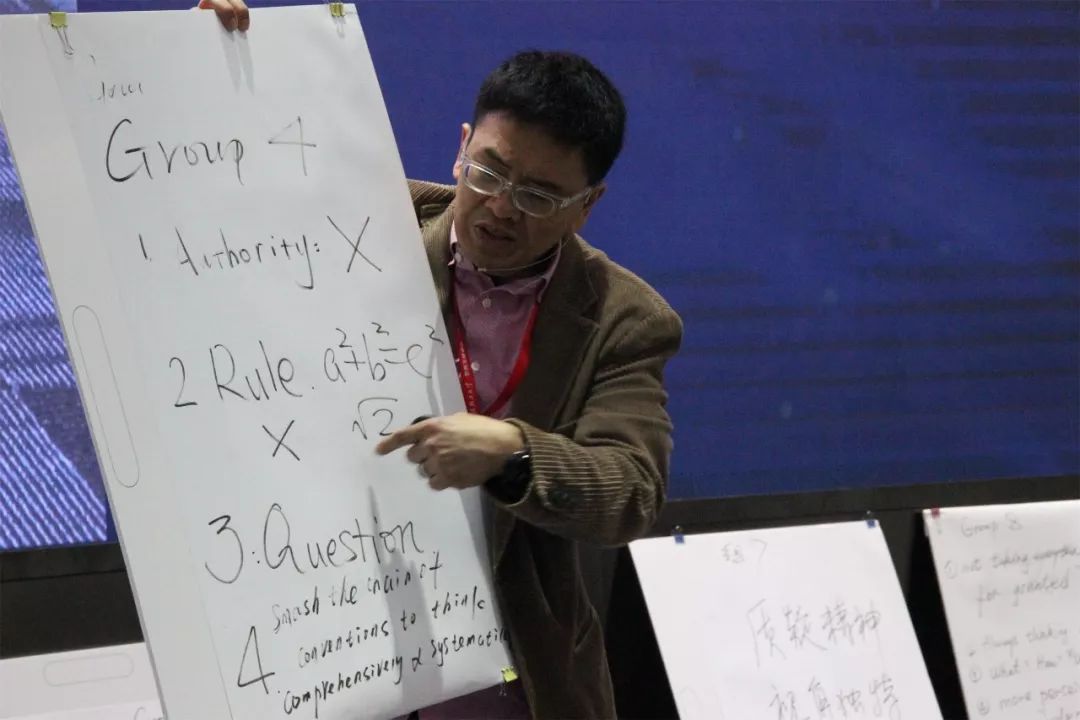 Group 4
1 Authority: X
2 Rule. a²+b²=c²
X √2
3: Question
4 Smash the chain of
conventions to think
comprehensively & systematic
组7
质疑精神
视角独特
Group 8
① not taking everything
for granted
+ Always thinking
① What? How?
② more